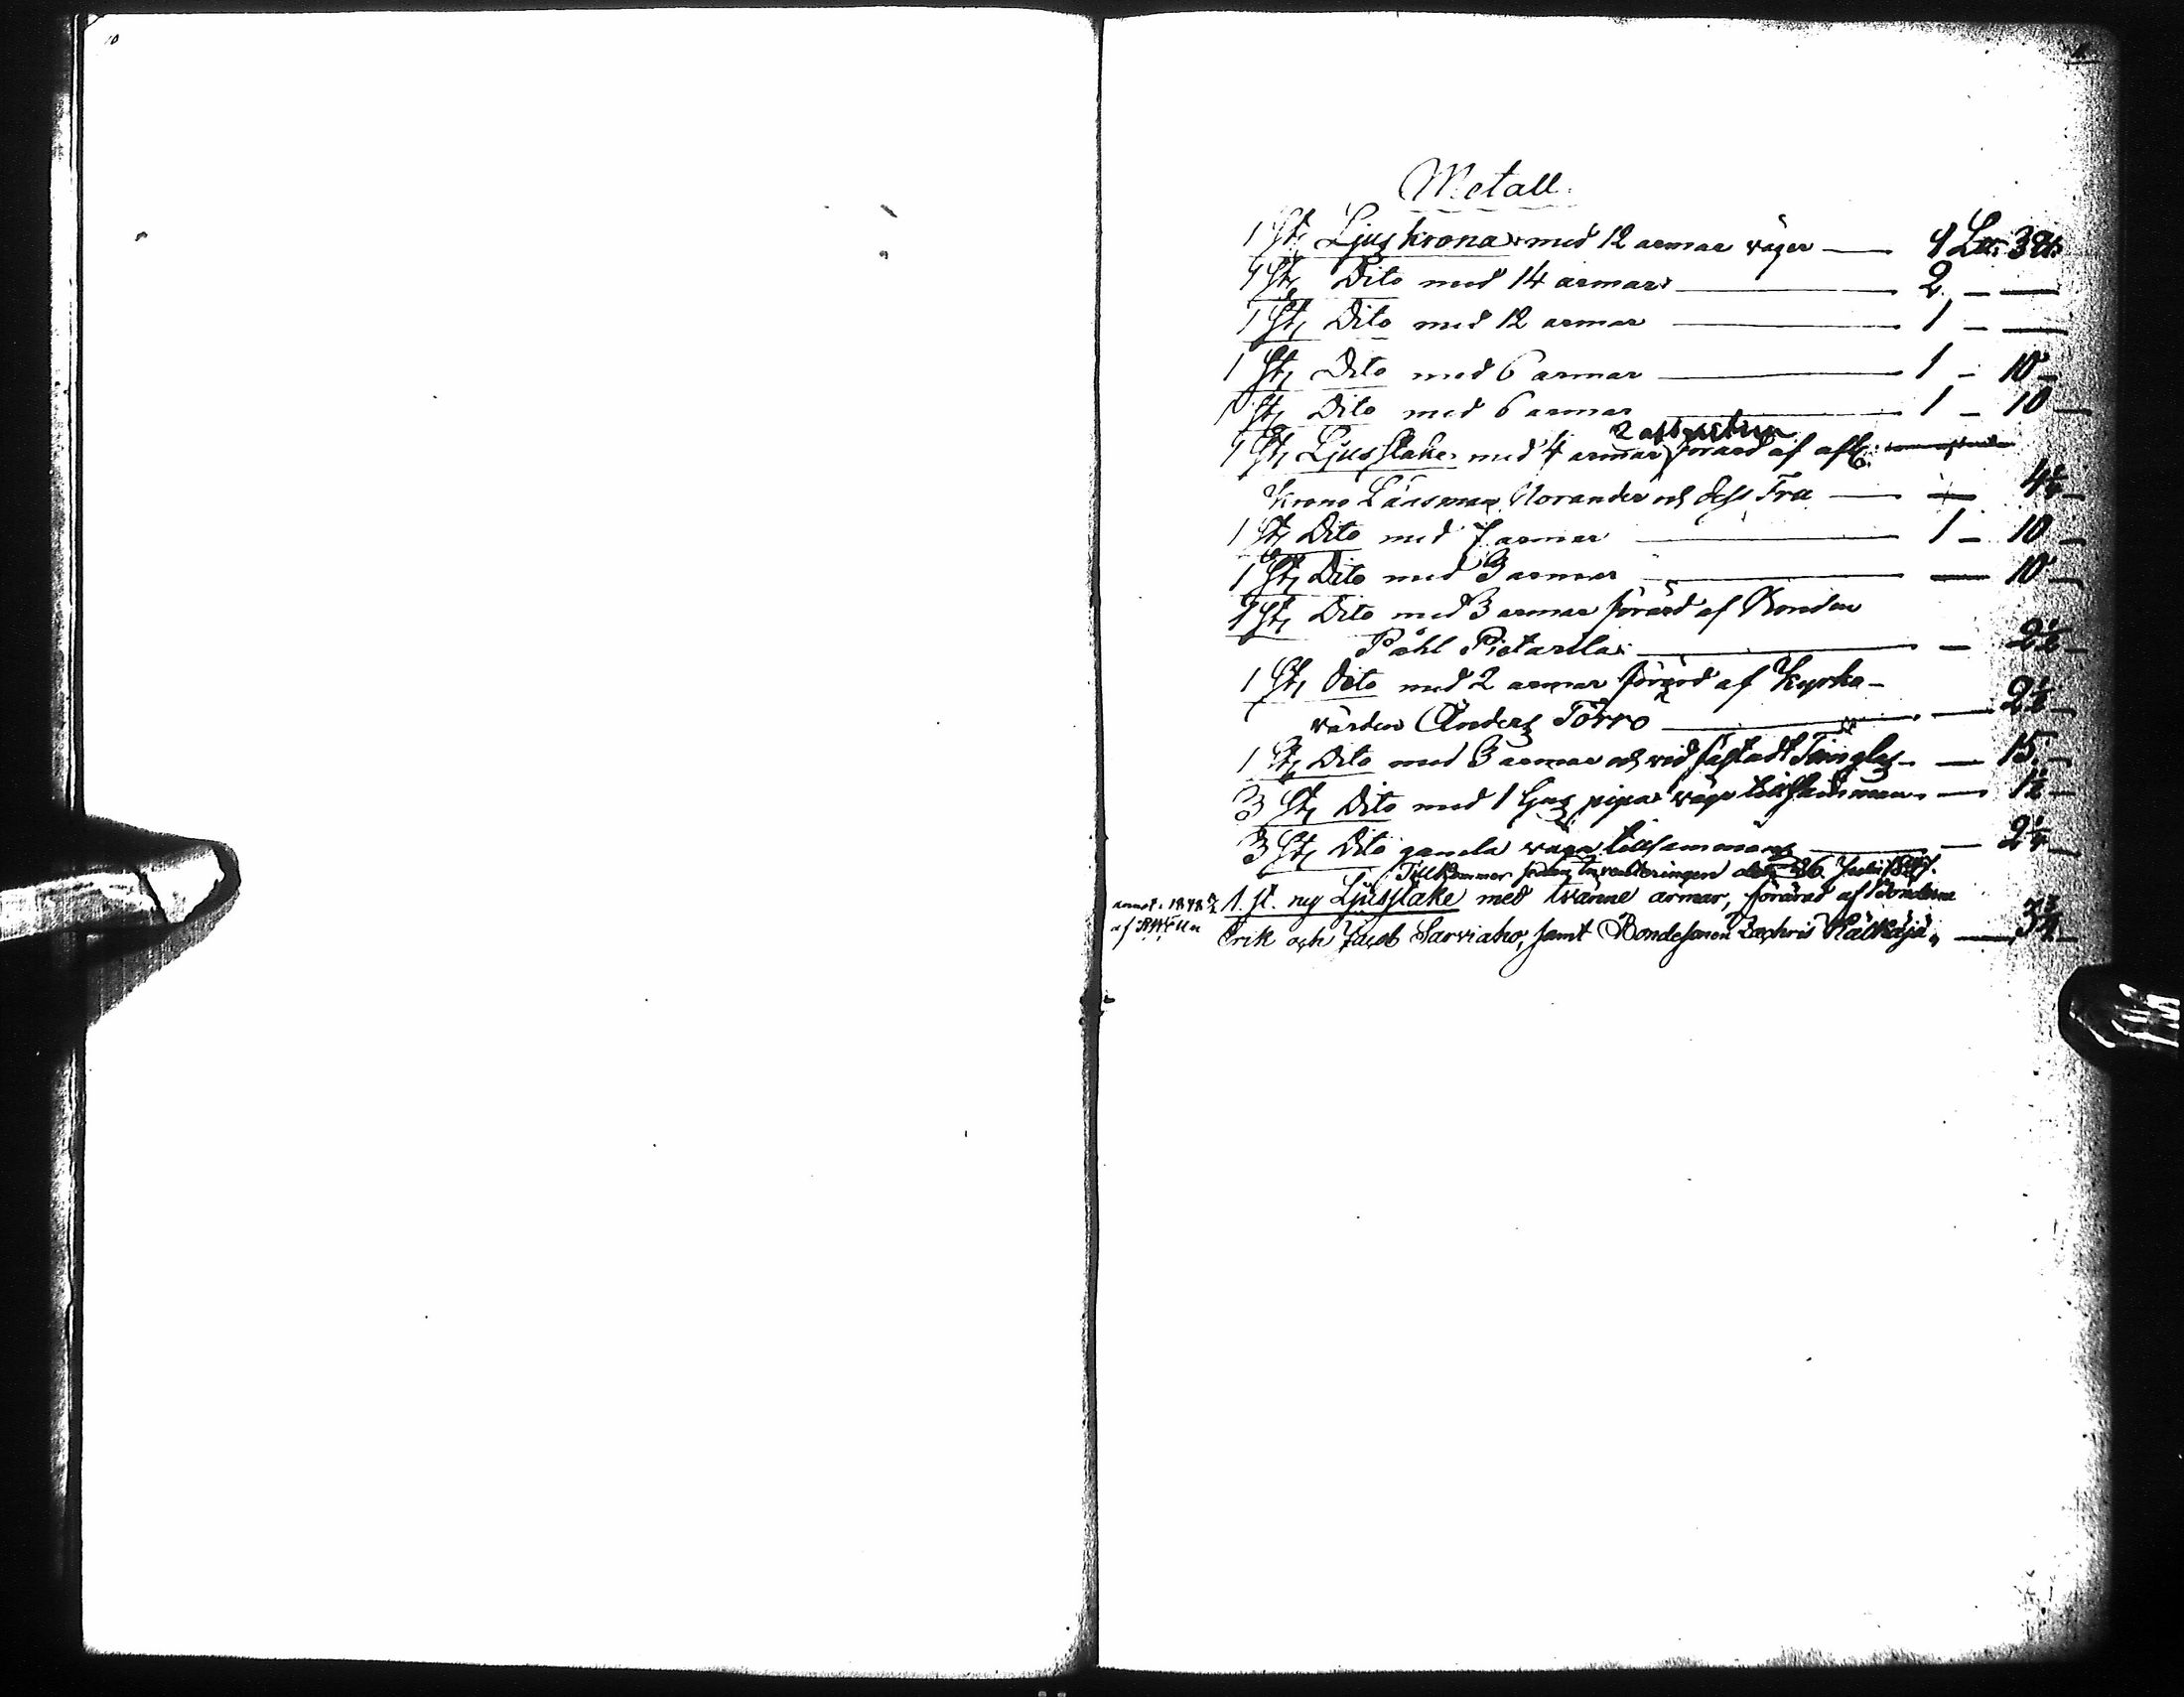 10
Metall.
1 St, Ljus krona med 12 armar väger — 1 L℔: 3 ℔:
1 St, Dito med 14 armar — 2 — —
1 St, Dito med 12 armar — 1 — —
1 St, Dito med 6 armar — 1 — 10 —
1 St, Dito med 6 armar — 1 — 10 —
1 St, Ljusstake med 4 armar förärd af afl:
Krono Länsman Norander och dess Fru — — 4¼ —
1 St, Dito med 7 armar — 1 — 10 —
1 St, Dito med 3 armar — — 10 —
1 St, Dito med 3 armar förärd af Bonden
Påhl Pietarila — — 2½ —
1 St, Dito med 2 armar förärd af Kyrko-
värden Anders Törrö — — 2½ —
1 St, Dito med 3 armar och vid fästadt — — 15 —
3 St, Dito med 1 ljus pipa väga tillsamman — — 1½ —
3 St, Dito gamla väga tillsammans — — 2¼ —
Tillkommer sedan Inventeringen den 26 Julii 1847.
1. st. ny Ljusstake med tvänne armar, förärad af Bönderne
Erik och Jacob Sarviaho, samt Bondesonen Zachris Kälkäjä, — 3¾ —